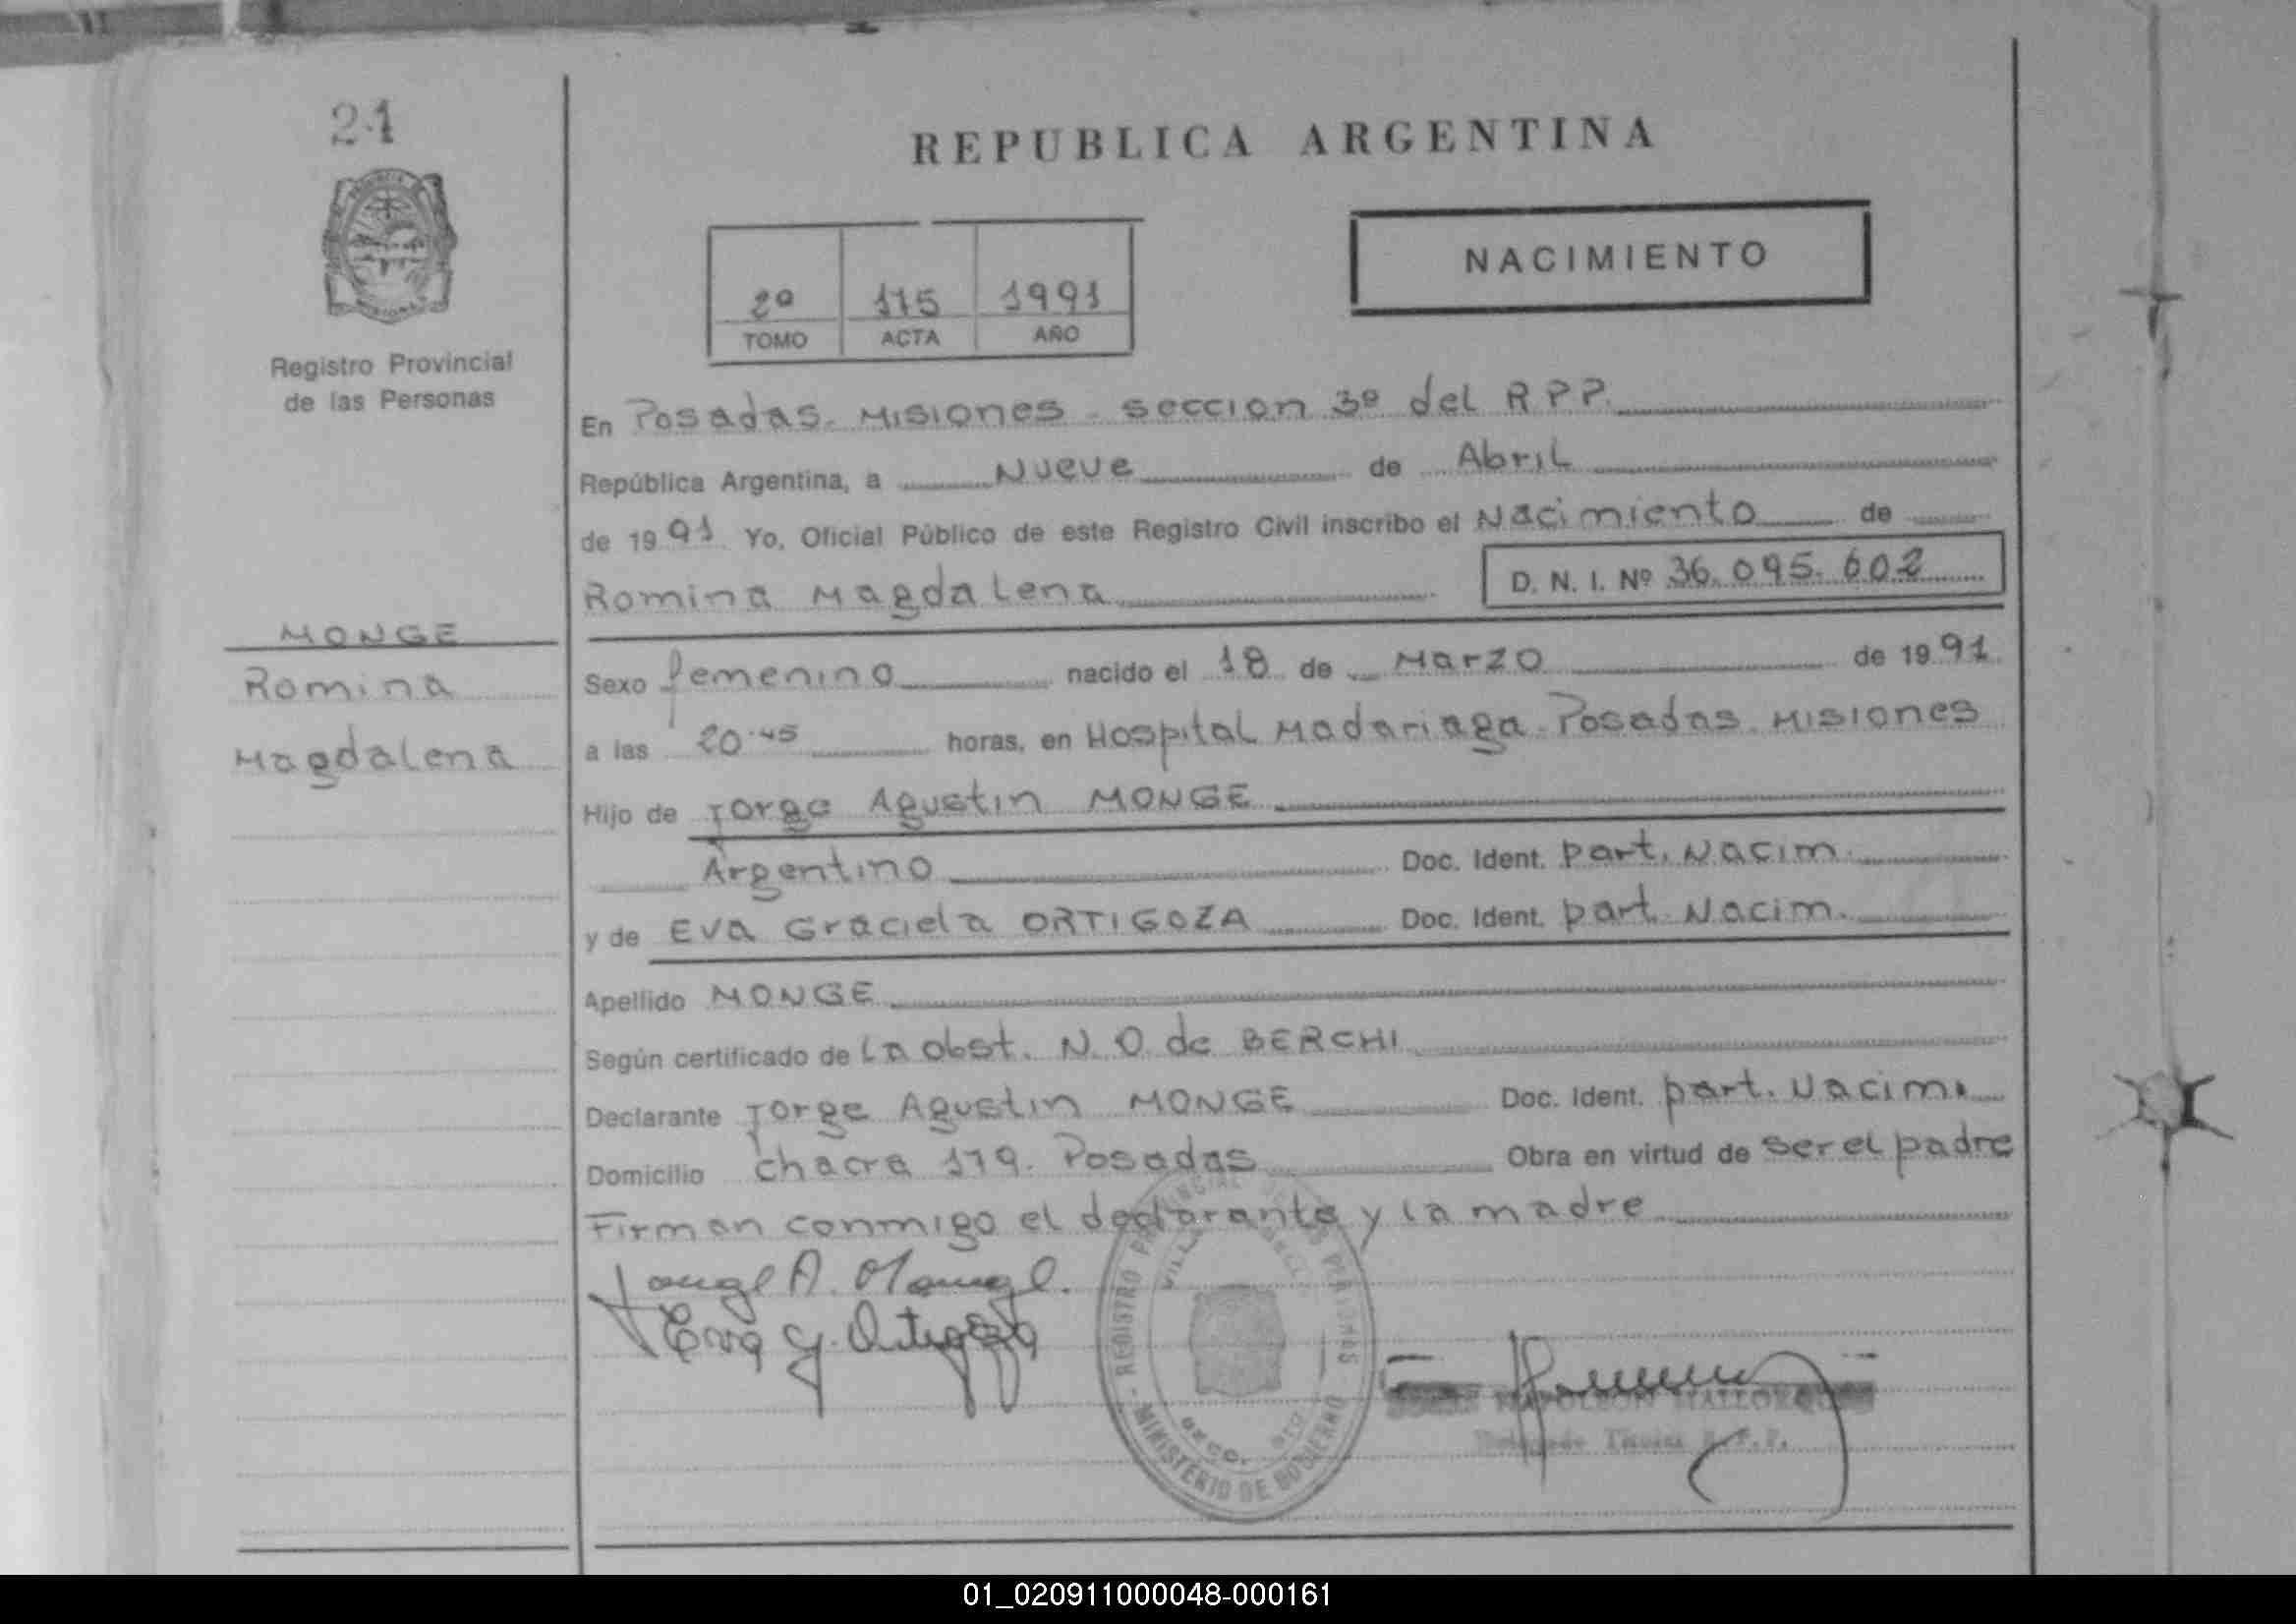 21
REPUBLICA ARGENTINA
NACIMIENTO
2º 175 1991
TOMO ACTA AÑO
Registro Provincial
de las Personas
En Posadas. Misiones - seccion 3º del R P P.
República Argentina, a Nueve de Abril
de 1991 Yo, Oficial Público de este Registro Civil inscribo el Nacimiento de
Romina Magdalena D. N. I. Nº 36.095.602
MONGE
Romina
Magdalena
Sexo femenino nacido el 18 de Marzo de 1991
a las 20.45 horas, en Hospital Madariaga. Posadas. Misiones
Hijo de Jorge Agustin MONGE
Argentino Doc. Ident. part. Nacim.
y de Eva Graciela ORTIGOZA Doc. Ident. part. Nacim.
Apellido MONGE
Según certificado de La obst. N. O. de BERCHI
Declarante Jorge Agustin MONGE Doc. Ident. part. Nacim.
Domicilio chacra 179. Posadas Obra en virtud de ser el padre
Firman conmigo el declarante y la madre
Jorge A. Monge.
Eva G. Ortigoza
REGISTRO PROVINCIAL DE LAS PERSONAS
MINISTERIO DE GOBIERNO
NAPOLEON
01_020911000048-000161